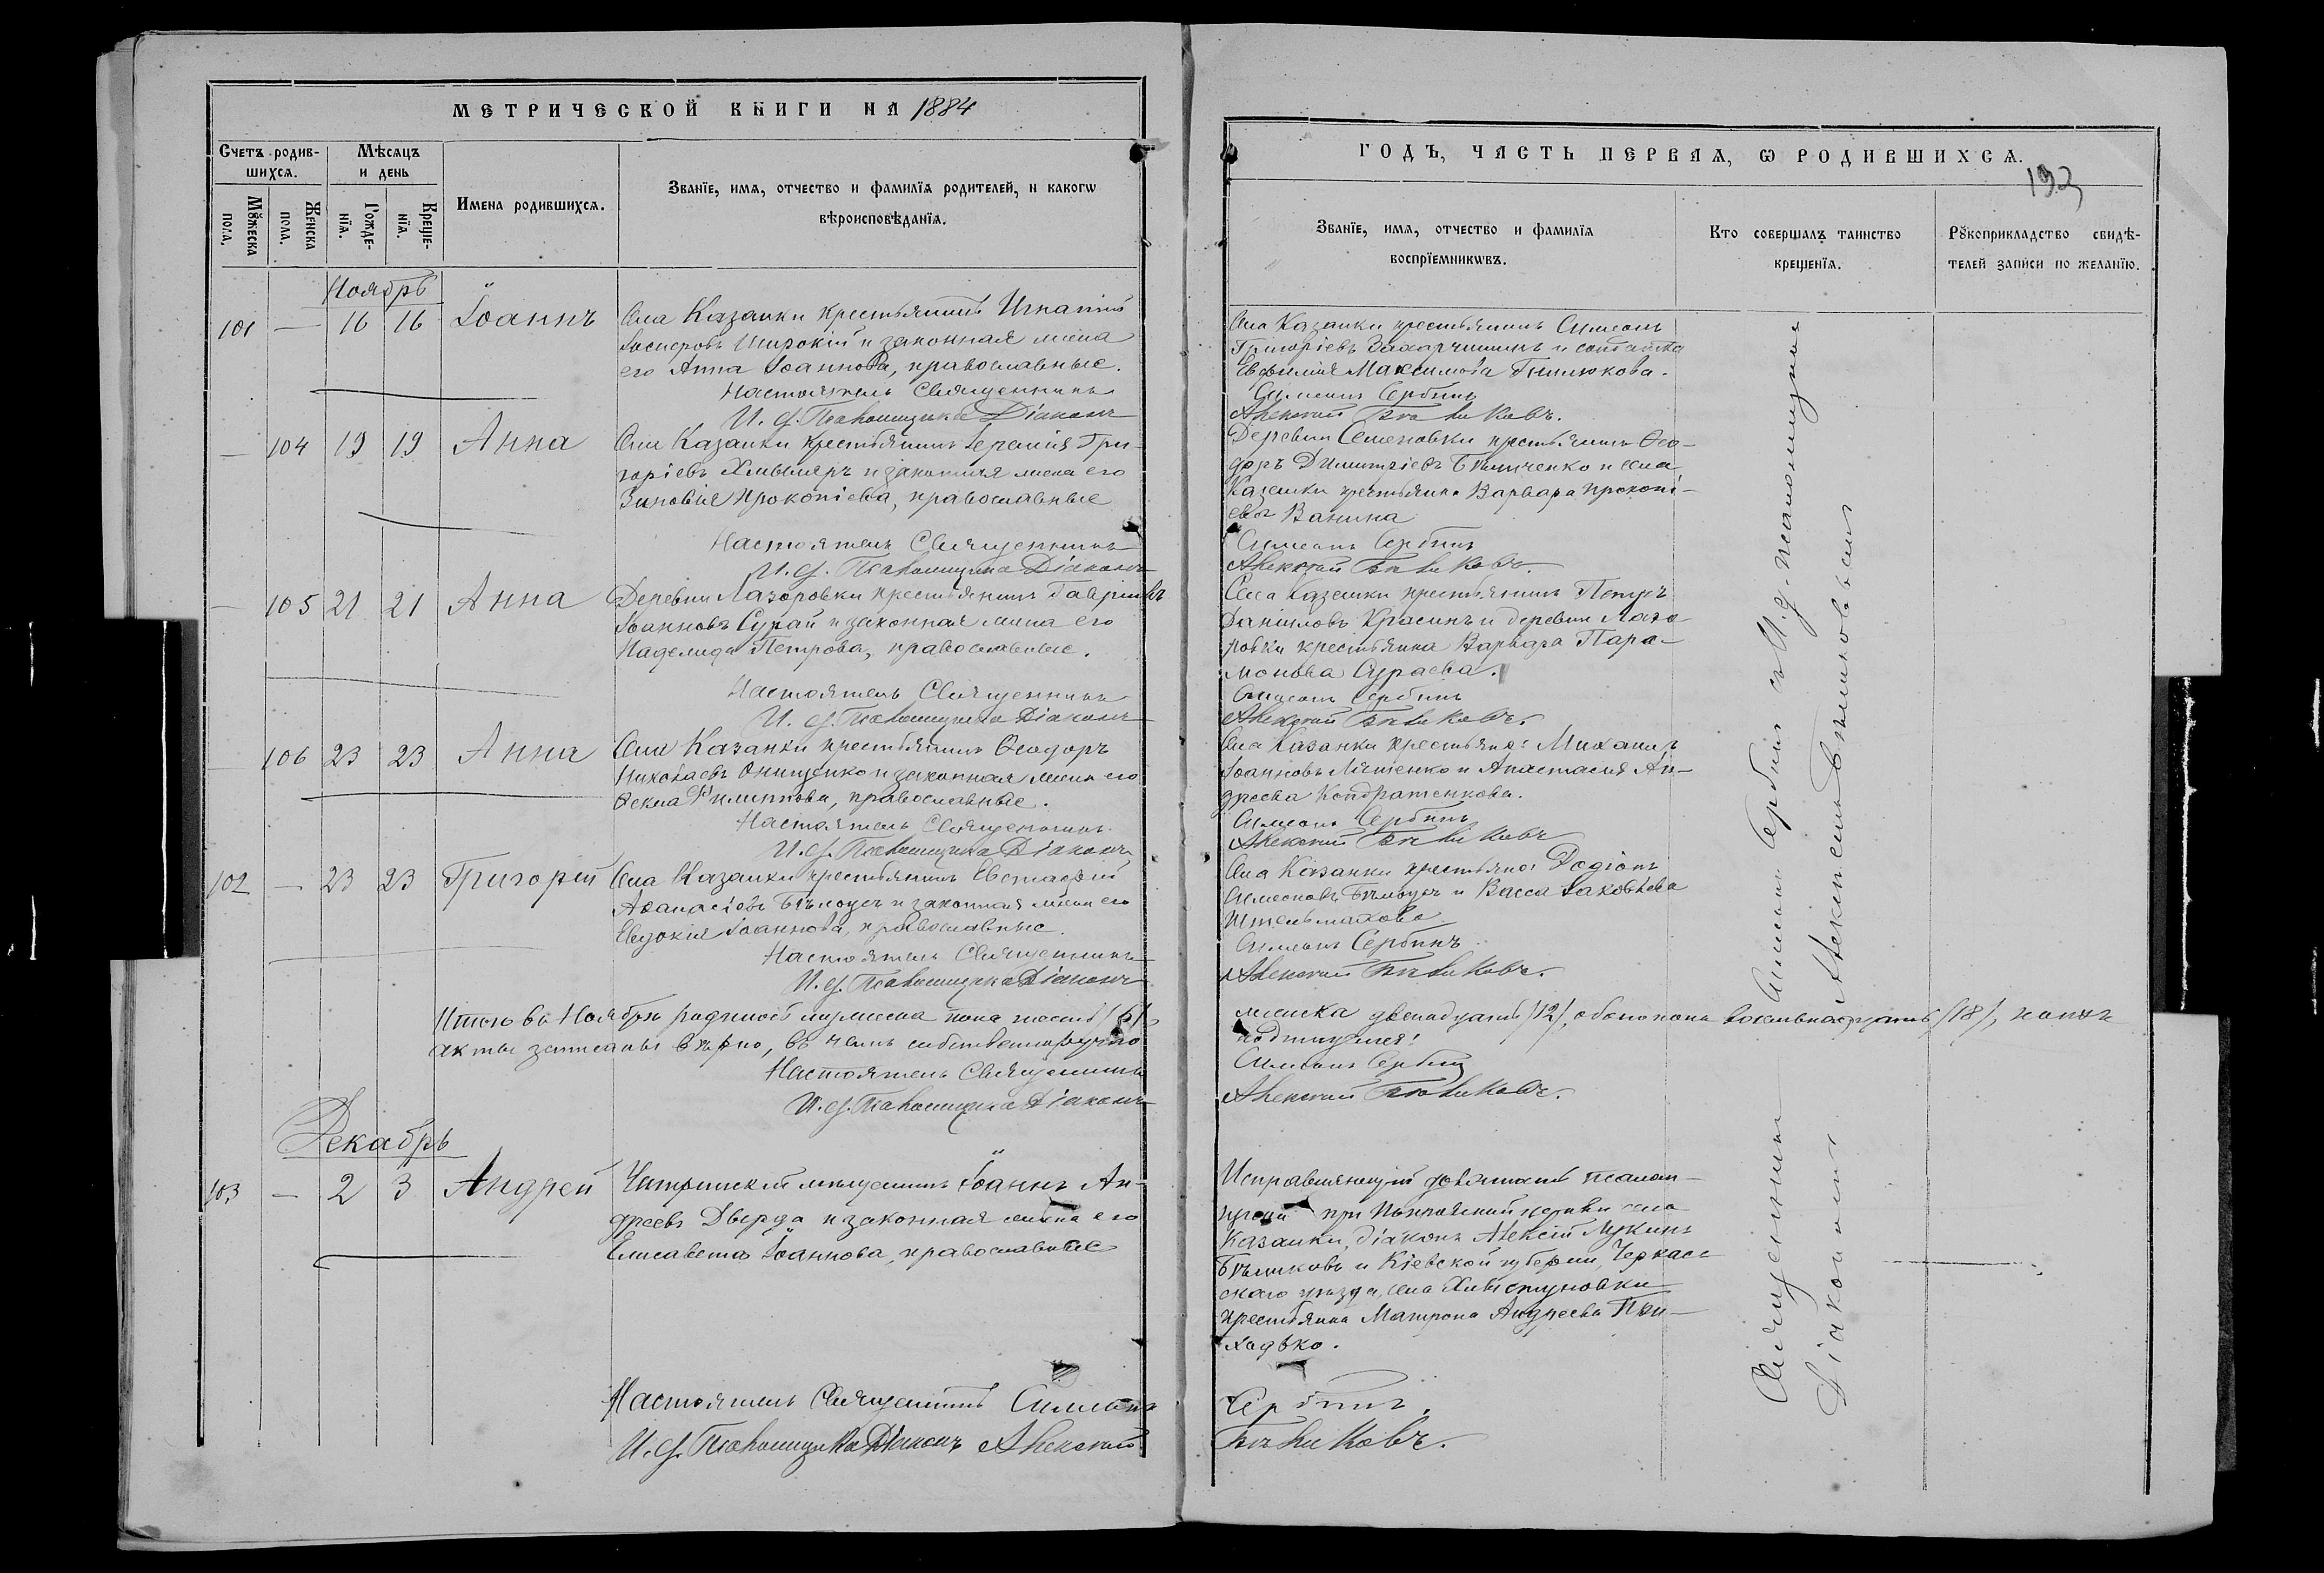 МЕТРИЧЕСКОЙ КНИГИ НА 1884
Счетъ родив-
шихся.
Мѣсяцъ
и день
Мꙋжеска
пола.
Женска
пола.
Рожде-
нїя.
Креще-
нїя.
Имена родившихся.
Званїе, имя, отчество и фамилїя родителей, и какогѡ
вѣроисповѣданїя.
Ноябрь
101 — 16 16 Іоаннъ
Села Казанки крестьянинъ Игнатій
Іосифовъ Широкій и законная жена
его Анна Іоаннова, православные.
Настоятель Священникъ
И. д. Псаломщика Діаконъ
— 104 19 19 Анна
Села Казанки крестьянинъ Іеремія Гри-
горіевъ и законная жена его
Зиновія Прокопіева, православные
Настоятель Священникъ
И. д. Псаломщика Діаконъ
— 105 21 21 Анна
Деревни Лазоровки крестьянинъ Гавріилъ
Іоанновъ Сурай и законная жена его
Надежда Петрова, православные.
Настоятель Священникъ
И. д. Псаломщика Діаконъ
106 23 23 Анна
Села Казанки крестьянинъ Ѳеодоръ
Николаевъ Онищенко и законная жена его
Ѳекла Филиппова, православные.
Настоятель Священникъ
И. д. Псаломщика Діаконъ
102 — 23 23 Григорій
Села Казанки крестьянинъ Евстафій
Аѳанасіевъ Бѣлоусъ и законная жена его
Евдокія Іоаннова, православные.
Настоятель Священникъ
И. д. Псаломщика Діаконъ
Итого въ Ноябрѣ родилось мужеска пола шесть /6/,
акты записаны вѣрно, въ чемъ собственноручно
Настоятель Священникъ
И. д. Псаломщика Діаконъ
Декабрь
103 — 2 3 Андрей
мѣщанинъ Іоаннъ Ан-
дреевъ Дверда и законная жена его
Елисавета Іоаннова, православные
Настоятель Священникъ Симеонъ
И. д. Псаломщика Діаконъ Алексій
ГОДЪ, ЧАСТЬ ПЕРВАЯ, Ѡ РОДИВШИХСЯ.
193
Званїе, имя, отчество и фамилїя
воспрїемникѡвъ.
Кто совершалъ таинство
крещенїя.
Рꙋкоприкладство свидѣ-
телей записи по желанїю.
Села Казанки крестьянинъ Симеонъ
Григоріевъ Захарчишинъ и солдатка
Евфимія Максимова Гнилюкова.
Симеонъ Сербинъ
Алексій Бѣликовъ.
Деревни Семеновки крестьянинъ Ѳео-
доръ Димитріевъ и села
Казанки крестьянка Варвара Прокопі-
ева Ванина
Симеонъ Сербинъ
Алексій Бѣликовъ.
Села Казанки крестьянинъ Петръ
Даніиловъ Красинъ и деревни Лазо-
ровки крестьянка Варвара Пара-
монова Сураева.
Симеонъ Сербинъ
Алексій Бѣликовъ.
Села Казанки крестьяне: Михаилъ
Іоанновъ Ляшенко и Анастасія Ан-
дреева Кондратенкова.
Симеонъ Сербинъ
Алексій Бѣликовъ
Села Казанки крестьяне: Родіонъ
Симеоновъ Бѣлоусъ и Васса Іаковлева
Штельмахова
Симеонъ Сербинъ
Алексій Бѣликовъ.
женска двенадцать /12/, обоего пола восемнадцать /18/,
подписуемся:
Симеонъ Сербинъ
Алексій Бѣликовъ.
Исправляющій должность псалом-
щика при Покровской церкви села
Казанки, діаконъ Алексій Лукинъ
Бѣликовъ и Кіевской губерніи, Черкас-
скаго уѣзда, села Хлыстуновки
крестьянка Матрона Андреева При-
ходько.
Сербинъ.
Бѣликовъ.
Священникъ Симеонъ Сербинъ съ И. д. псаломщика
Діакономъ Алексіемъ Бѣликовымъ